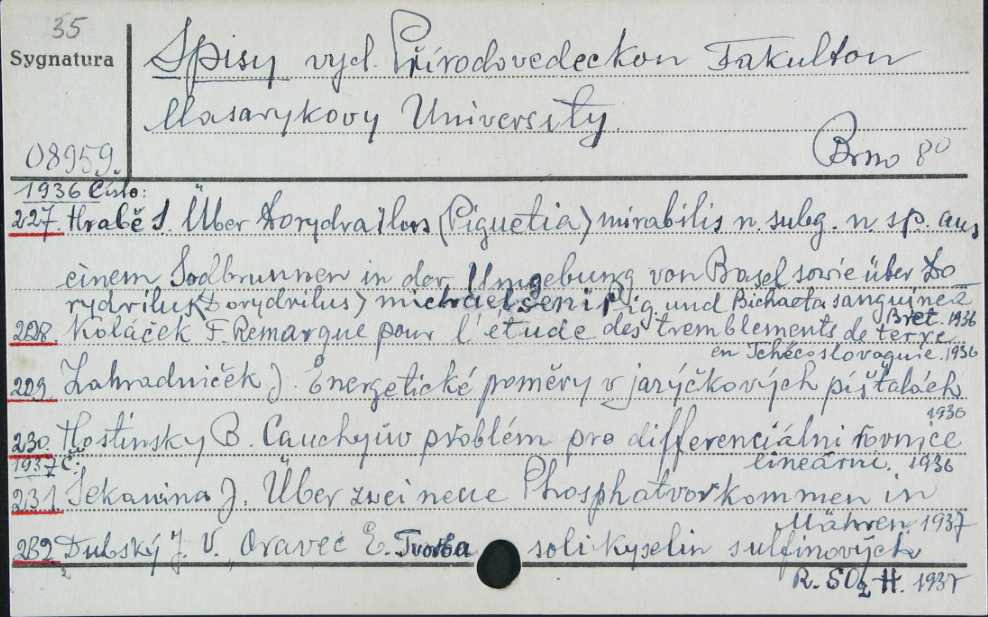 35
Sygnatura
Spisy vyd. Přírodovedeckon Fakulton
Masarykovy University
08959. Brno 8º
1936 Číslo:
227. Hrabě S. Über Dorydrailus (Piguetia) mirabilis n. subg. n sp. aus
einem Sodbrunnen in der Umgebung von Basel sowie über Do
rydrilus (Dorydrilus) michaelseni Pig. und Bichaeta sanguinea
Bret. 1936
228. Koláček F. Remarque pour l'étude des tremblements de terre
en Tchécoslovaquie. 1936
229. Zahradniček J. Energetické poměry v jazýčkových píšťalách
1936
230. Hostinsky B. Cauchyův problém pro differenciálni rovnice
lineárni. 1936
1937 Č:
231. Sekanina J. Über zwei neue Phosphatvorkommen in
Mähren 1937
232. Dubský J. V. Oravec E. Tvorba soli kyselin sulfinových
R. SO₂H. 1937